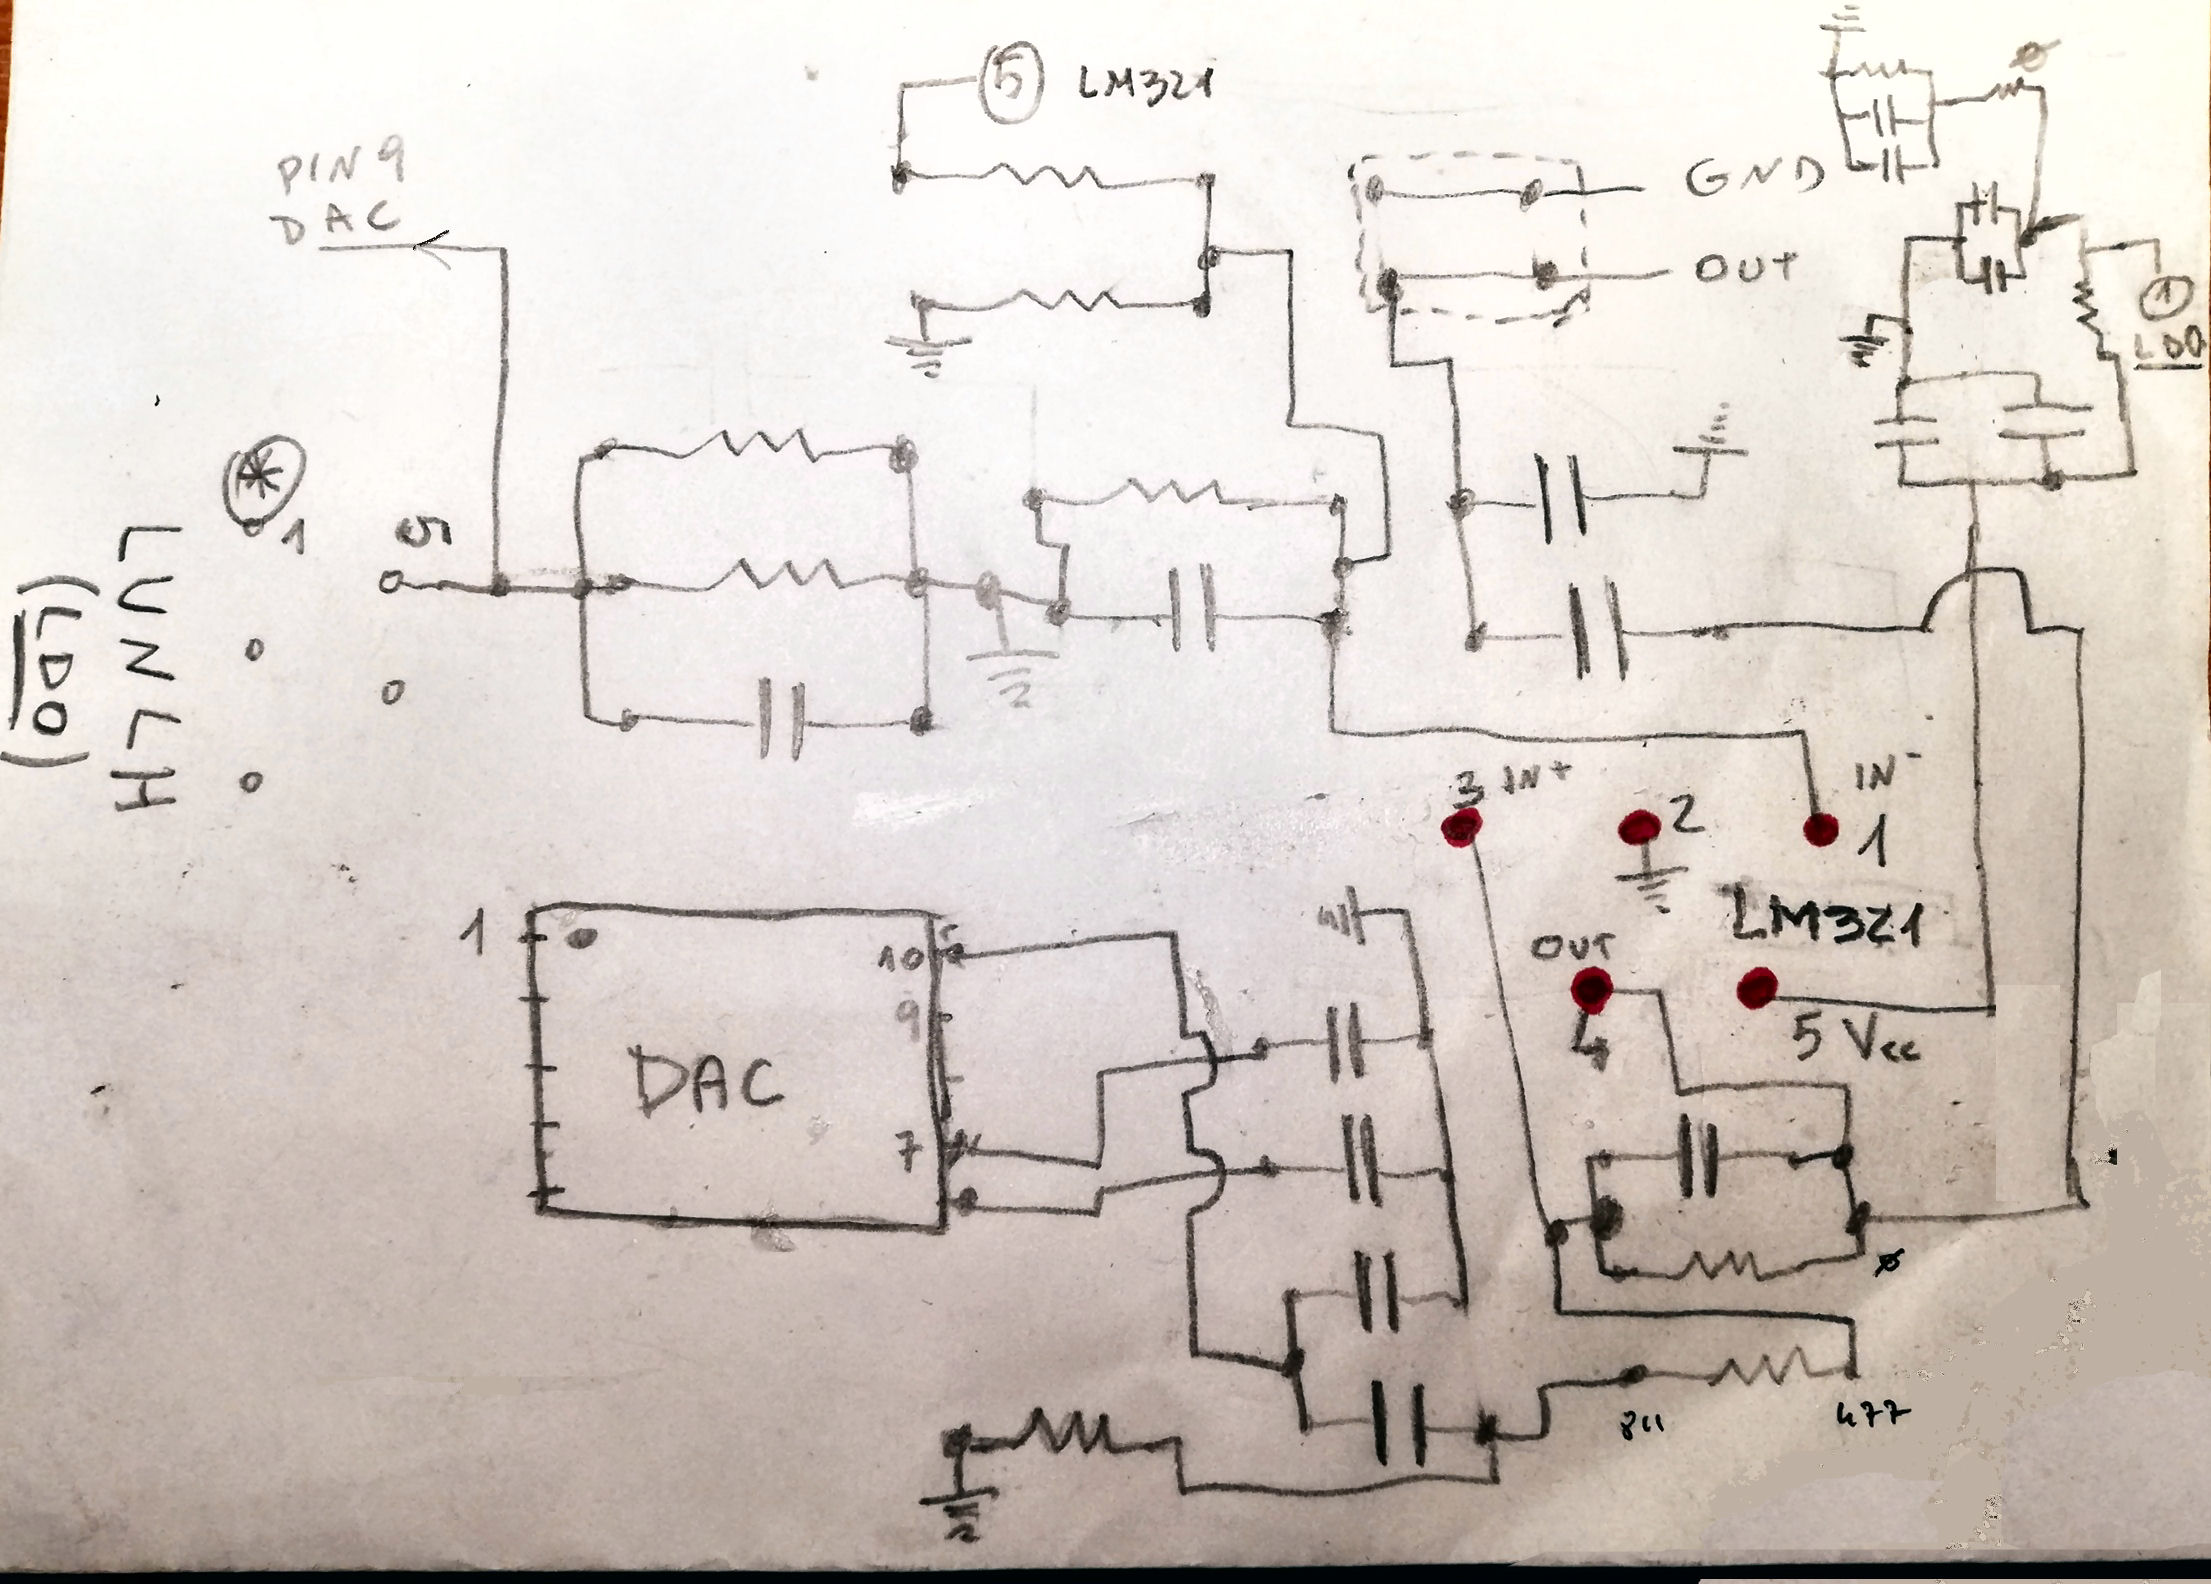 5 LM321
PIN 9
DAC
GND
OUT
1
LDO
1
5
LUNLH
(LDO)
3 IN+
2
IN-
1
LM321
OUT
4
5 Vcc
1
10
9
7
DAC
811
477